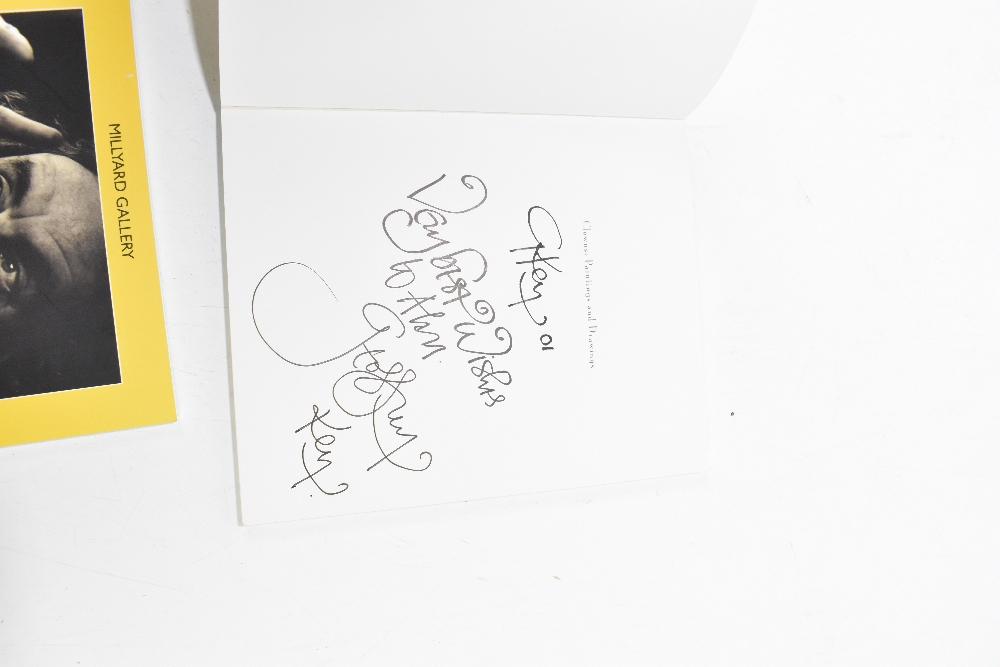 MILLYARD GALLERY
Clowns: Paintings and Drawings
01
Very best Wishes
to
Geoffrey